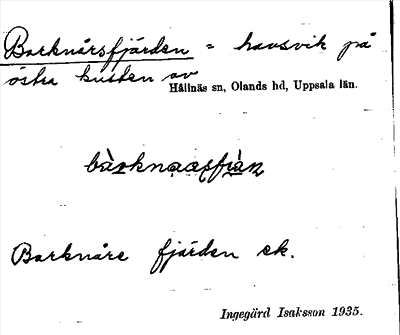 Barknåresfjärden = havsvik på
östra kusten av
Hållnäs sn, Olands hd, Uppsala län.
Barknåre fjärden ek.
Ingegärd Isaksson 1935.